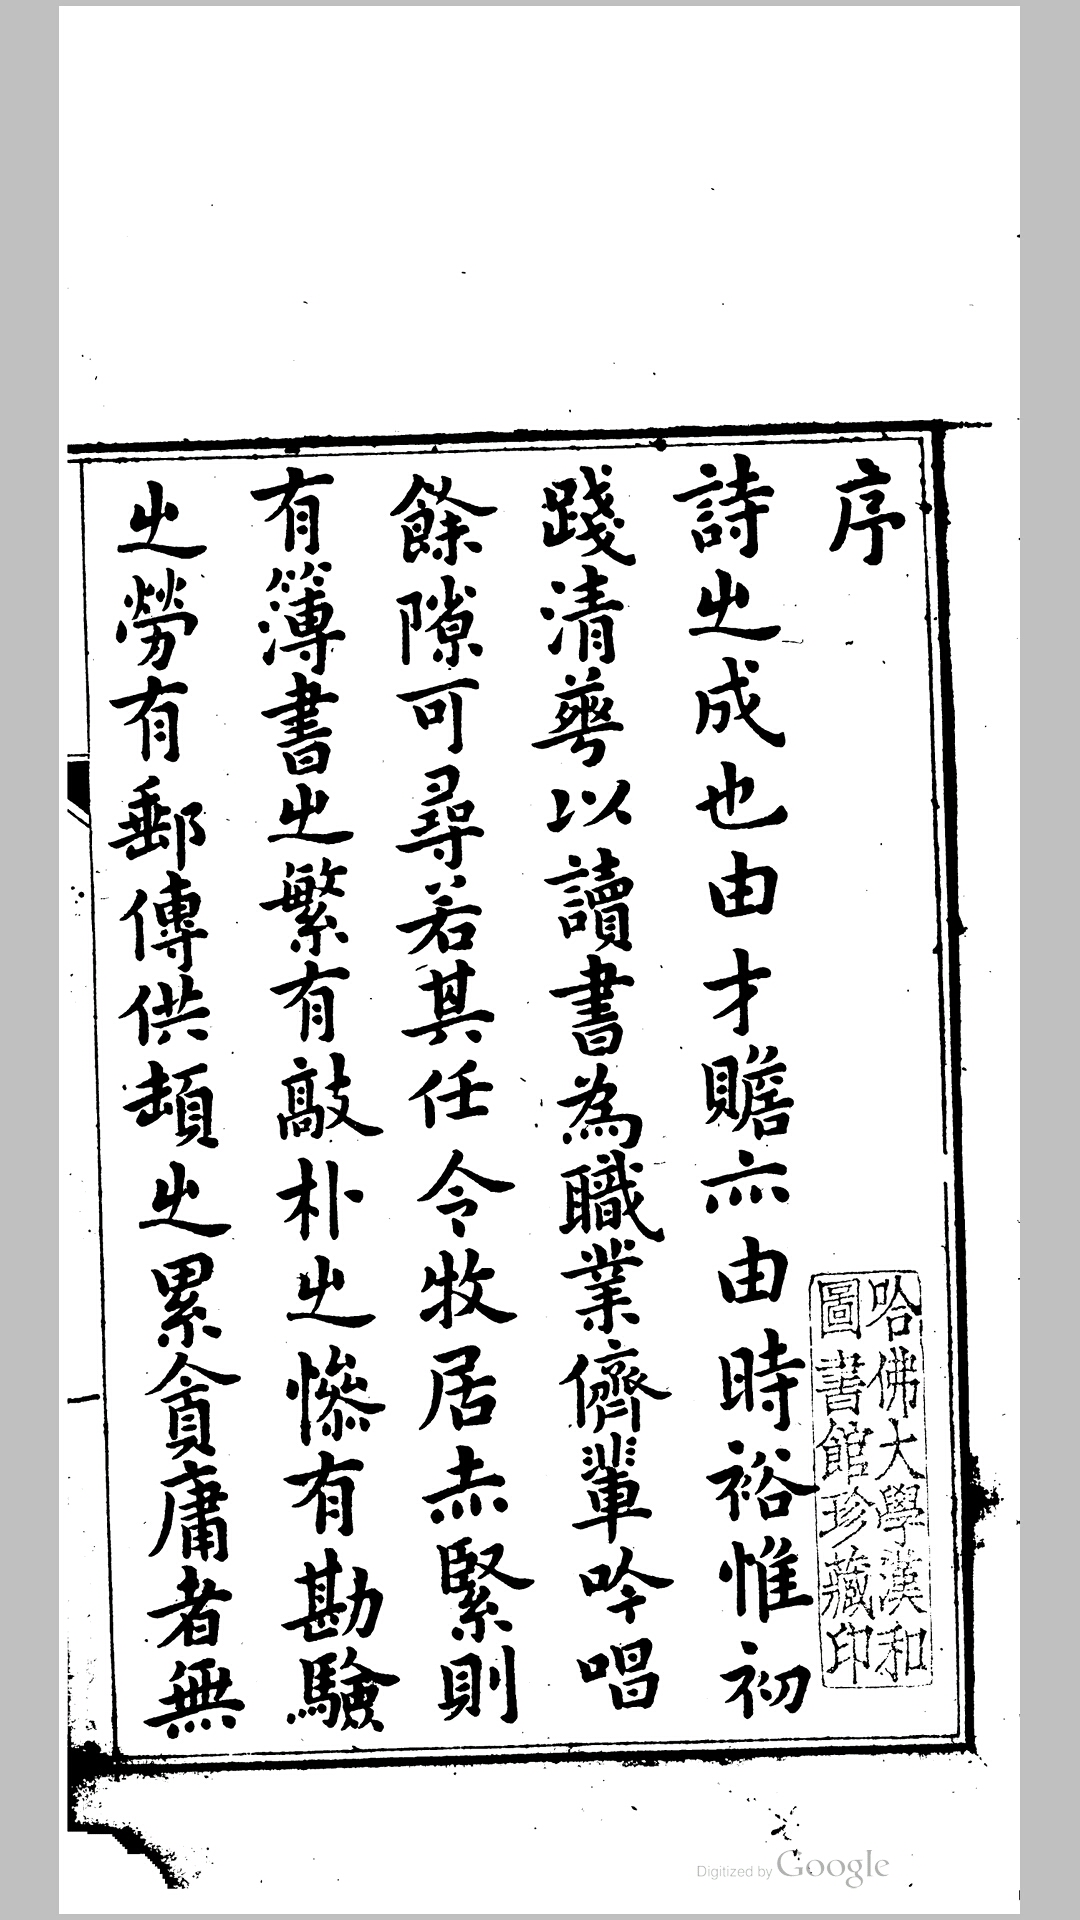 序
詩之成也由才贍亦由時裕惟初
踐清華以讀書為職業儕輩吟唱
餘隙可尋若其任令牧居赤緊則
有簿書之繁有敲朴之慘有勘驗
之勞有郵傳供頓之累貪庸者無
哈佛大學漢和
圖書館珍藏印
Digitized by Google